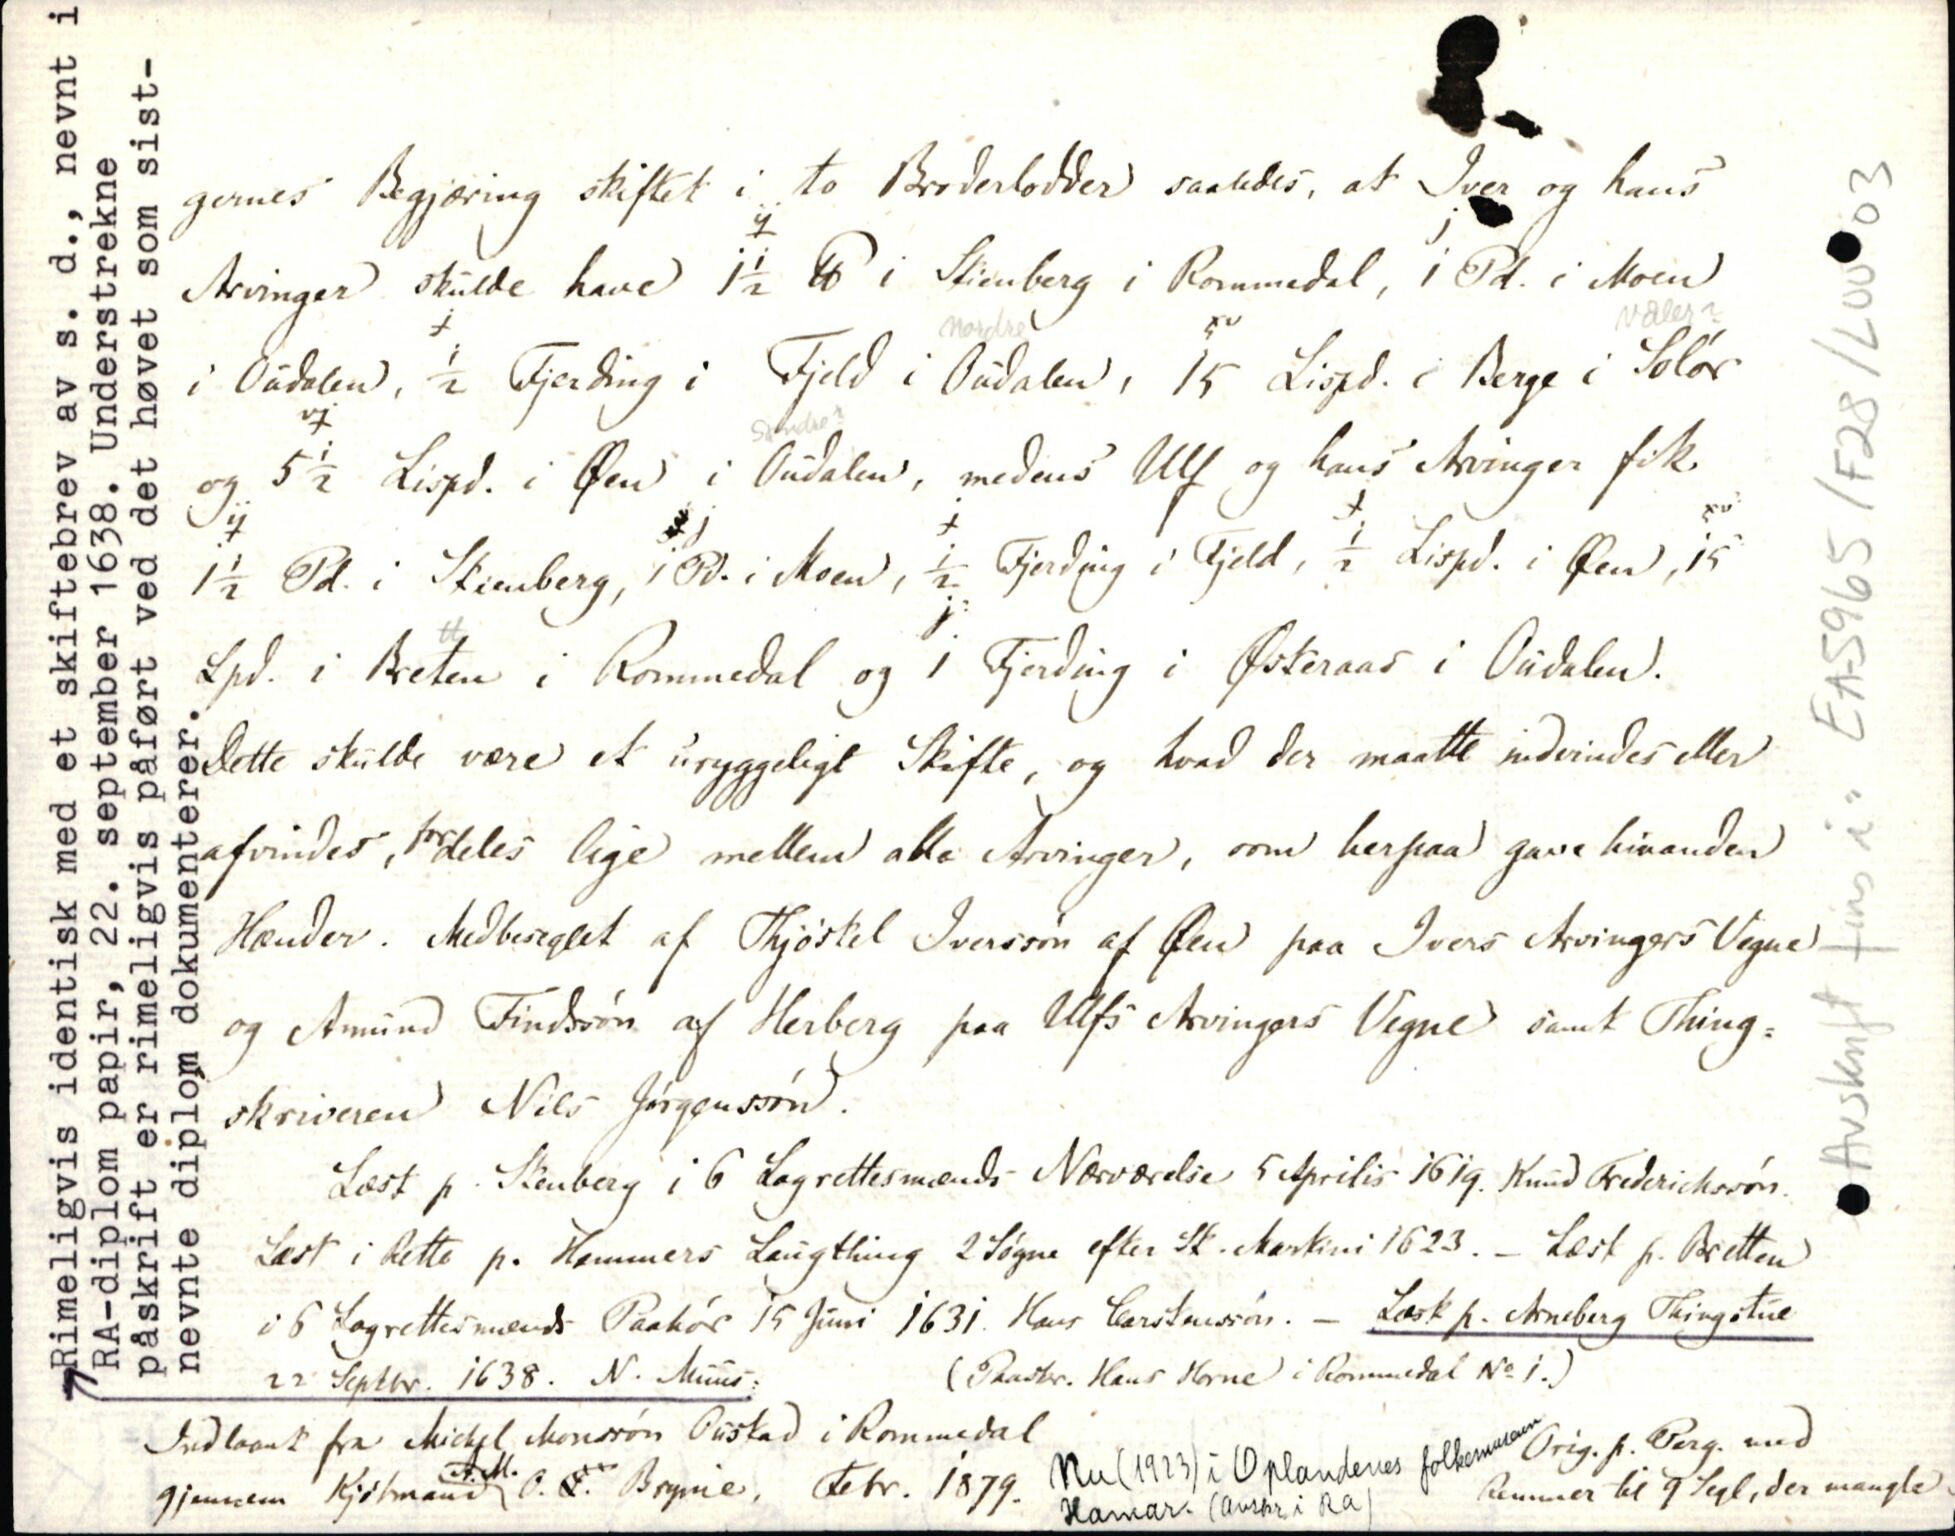 gernes Begjæring skiftet i to Broderlodder saaledes, at Iver og hans
Arvinger skulde have 1½ ℔ i Stienberg i Rommedal, 1 Pd. i Moen
nordre
Våler?
i Oudalen, ½ Fjerding i Fjeld i Oudalen, 15 Lispd. i Berge i Solør
Søndre?
og 5½ Lispd. i Øen i Oudalen, medens Ulf og hans Arvinger fik
1½ Pd. i Stienberg, 1 Pd. i Moen, ½ Fjerding i Fjeld, ½ Lispd. i Øen, 15
tt
Lpd. i Breten i Rommedal og 1 Fjerding i Øskeraas i Oudalen.
Dette skulde være et uryggeligt Skifte, og hvad der maatte indvindes eller
afvindes, fordeles lige mellem alle Arvinger, som herpaa gave hinanden
Hænder. Medbeseglet af Thjøstel Iverssøn af Øen paa Ivers Arvingers Vegne
og Amund Findssøn af Herberg paa Ulfs Arvingers Vegne samt Thing=
skriveren Nils Jørgenssøn.
Læst p. Stenberg i 6 Lagrettesmænds Nærværelse 5 Aprilis 1619. Knud Frederichssøn.
Læst i Rette p. Hammers Laugthing 2 Søgne efter St. Martini 1623. — Læst p. Bretten
i 6 Lagrettesmænds Paahør 15 Juni 1631. Hans Carstenssøn. — Læst p. Arneberg Thingstue
22 Septbr. 1638. N. Muus.
(Paaskr. Hans Horne i Rommedal No 1.)
Indlaant fra Michel Monssøn Oustad i Rommedal
gjennem Kjøbmand A.M. O. Brynie, Febr. 1879.
Nu (1923) i Oplandenes folkemuseum
Hamar. (Avskr. i RA)
Orig. p. Perg. med
Remmer til 9 Segl, der mangle.
Rimeligvis identisk med et skiftebrev av s. d., nevnt i
RA-diplom papir, 22. september 1638. Understrekne
påskrift er rimeligvis påført ved det høvet som sist-
nevnte diplom dokumenterer.
Avskrift fins i: EA-5965/F28/L0003